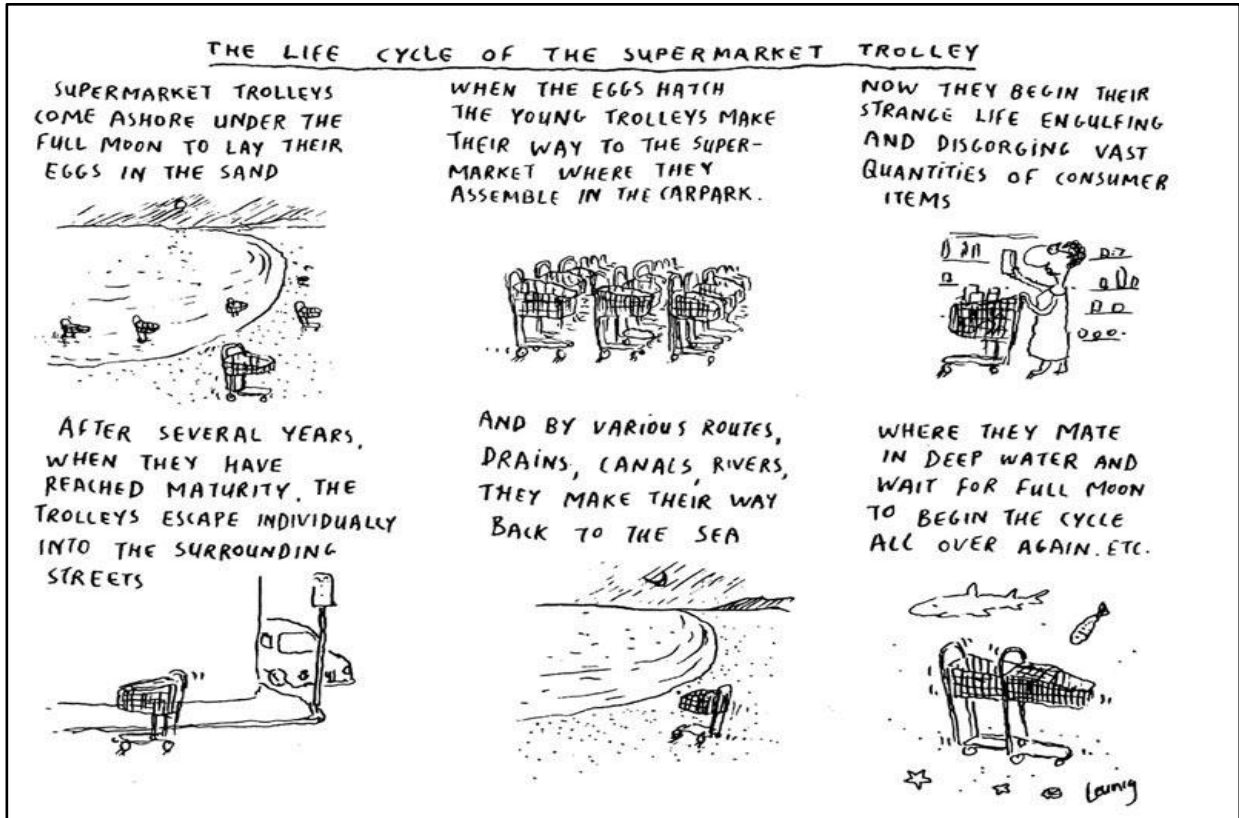 THE LIFE CYCLE OF THE SUPERMARKET TROLLEY
SUPERMARKET TROLLEYS
COME ASHORE UNDER THE
FULL MOON TO LAY THEIR
EGGS IN THE SAND
WHEN THE EGGS HATCH
THE YOUNG TROLLEYS MAKE
THEIR WAY TO THE SUPER-
MARKET WHERE THEY
ASSEMBLE IN THE CARPARK.
NOW THEY BEGIN THEIR
STRANGE LIFE ENGULFING
AND DISGORGING VAST
QUANTITIES OF CONSUMER
ITEMS
AFTER SEVERAL YEARS,
WHEN THEY HAVE
REACHED MATURITY, THE
TROLLEYS ESCAPE INDIVIDUALLY
INTO THE SURROUNDING
STREETS
AND BY VARIOUS ROUTES,
DRAINS, CANALS, RIVERS,
THEY MAKE THEIR WAY
BACK TO THE SEA
WHERE THEY MATE
IN DEEP WATER AND
WAIT FOR FULL MOON
TO BEGIN THE CYCLE
ALL OVER AGAIN. ETC.
Leunig